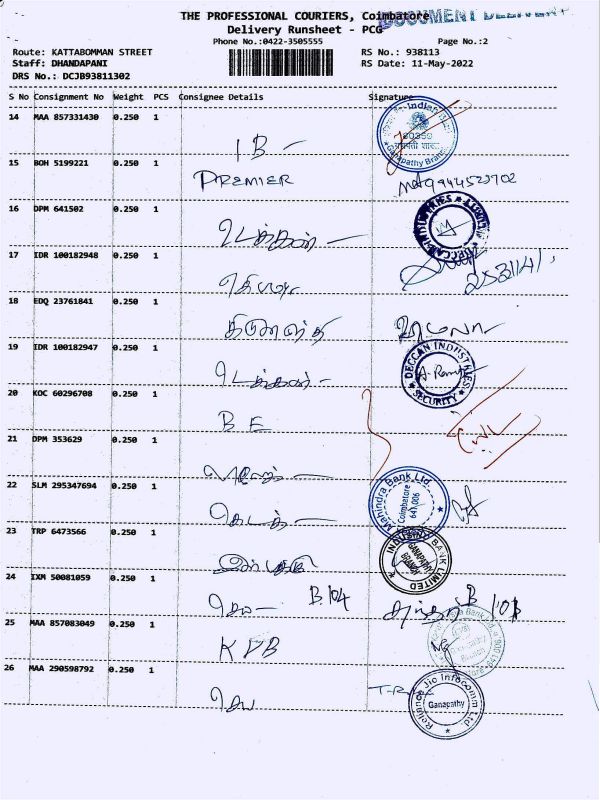 THE PROFESSIONAL COURIERS, Coimbatore
DOCUMENT DELIVERY
Delivery Runsheet - PCG
Phone No.:0422-3505555
Page No.:2
Route: KATTABOMMAN STREET
RS No.: 938113
Staff: DHANDAPANI
RS Date: 11-May-2022
DRS No.: DCJB93811302
S No Consignment No Weight PCS Consignee Details Signature
14 MAA 857331430 0.250 1
IB
Indian Bank
Ganapathy Branch
15 BOH 5199221 0.250 1
PREMIER
16 DPM 641502 0.250 1
டெக்கான்
DECCAN INDUSTRIES
17 IDR 100182948 0.250 1
18 EDQ 23761841 0.250 1
19 IDR 100182947 0.250 1
டெக்கான்
DECCAN INDUSTRIES
SECURITY
20 KOC 60296708 0.250 1
B E
21 DPM 353629 0.250 1
22 SLM 295347694 0.250 1
Mahindra Bank Ltd
Coimbatore
641 006
23 TRP 6473566 0.250 1
INDUSIND BANK LIMITED
GANAPATHY
BRANCH
24 IXM 50081059 0.250 1
B 104
25 MAA 857083049 0.250 1
KVB
26 MAA 290598792 0.250 1
Reliance Jio Infocomm Ltd
Ganapathy